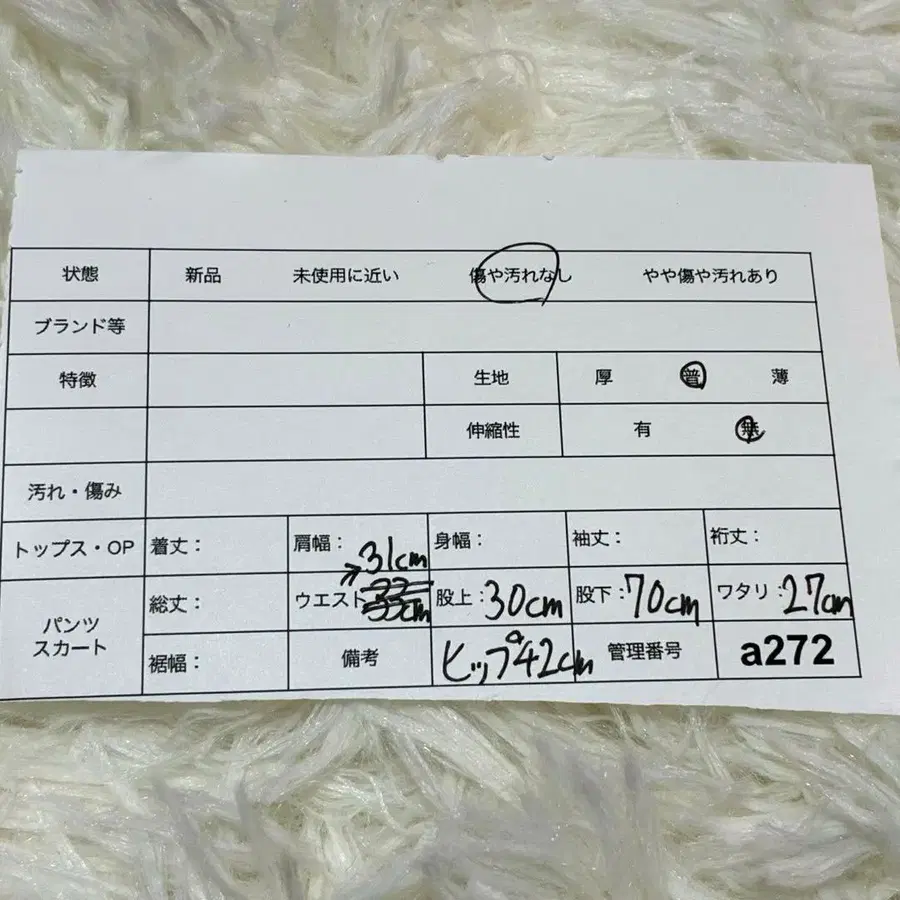 状態 新品 未使用に近い 傷や汚れなし やや傷や汚れあり
ブランド等
特徴 生地 厚 普 薄
伸縮性 有 無
汚れ・傷み
トップス・OP 着丈: 肩幅: 身幅: 袖丈: 裄丈:
→31cm
パンツ
スカート
総丈: ウエスト 33cm 股上:30cm 股下:70cm ワタリ:27cm
裾幅: 備考 ヒップ42cm 管理番号 a272